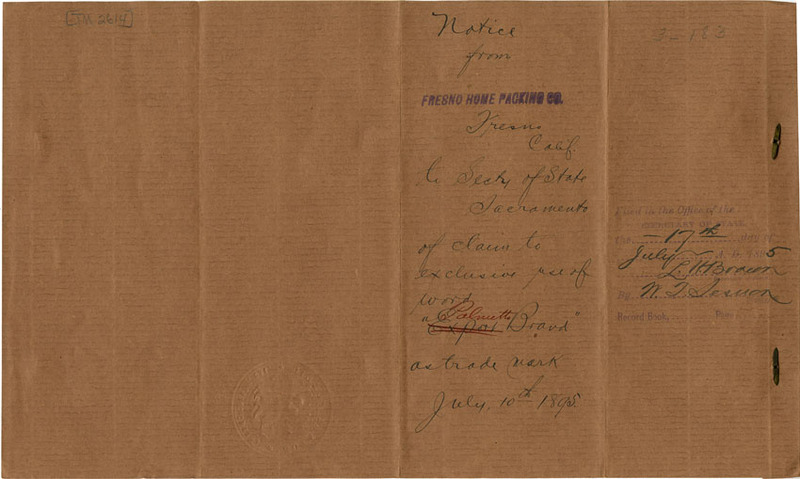 [TM 2614]
Notice
from
FRESNO HOME PACKING CO.
Fresno
Calif.
to Secty of State
Sacramento
of claim to
exclusive use of
word
Palmetto
"Export Brand"
as trade mark
July, 10th 1895
Filed in the Office of the
SECRETARY OF STATE
the 17th day of
July A. D. 1895
L. H. Brown
By
Record Book, Page